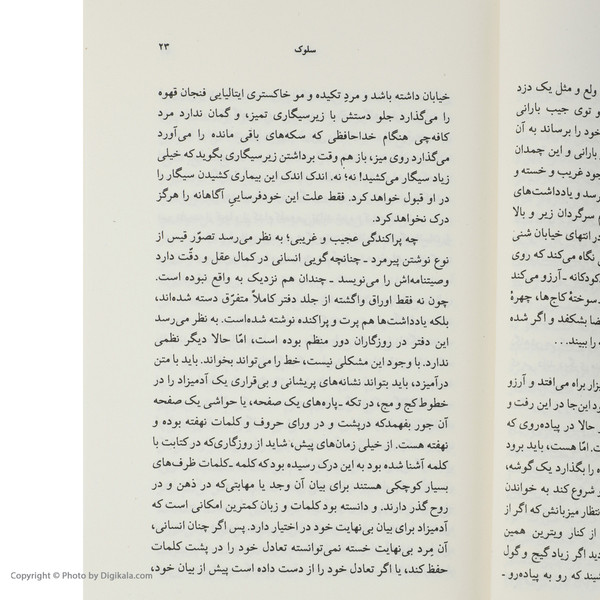 سلوک
۲۳
خیابان داشته باشد و مردِ تکیده و مو خاکستری ایتالیایی فنجان قهوه
را می‌گذارد جلو دستش با زیرسیگاری تمیز، و گمان ندارد مرد
کافه‌چی هنگام خداحافظی که سکه‌های باقی مانده را می‌آورد
می‌گذارد روی میز، باز هم وقت برداشتن زیرسیگاری بگوید که خیلی
زیاد سیگار می‌کشید! نه؛ نه. اندک اندک این بیماری کشیدن سیگار را
در او قبول خواهد کرد. فقط علت این خودفرسایی آگاهانه را هرگز
درک نخواهد کرد.
چه پراکندگی عجیب و غریبی؛ به نظر می‌رسد تصوّر قیس از
نوع نوشتن پیرمرد ـ چنانچه گویی انسانی در کمال عقل و دقّت دارد
وصیتنامه‌اش را می‌نویسد ـ چندان هم نزدیک به واقع نبوده است.
چون نه فقط اوراق واگشته از جلد دفتر کاملاً متفرّق دسته شده‌اند،
بلکه یادداشت‌ها هم پرت و پراکنده نوشته شده‌است. به نظر می‌رسد
این دفتر در روزگاران دور منظم بوده است، امّا حالا دیگر نظمی
ندارد. با وجود این مشکلی نیست، خط را می‌تواند بخواند. باید با متن
درآمیزد، باید بتواند نشانه‌های پریشانی و بی‌قراری یک آدمیزاد را در
خطوط کج و مج، در تکه ـ پاره‌های یک صفحه، یا حواشی یک صفحه
آن جور بفهمدکه درپشت و در ورای حروف و کلمات نهفته بوده و
نهفته هست. از خیلی زمان‌های پیش، شاید از روزگاری‌که در کتابت با
کلمه آشنا شده بود به این درک رسیده بود که کلمه ـ کلمات ظرف‌های
بسیار کوچکی هستند برای بیان آن وجد یا مهابتی‌که در ذهن و در
روح گذر دارند. و دانسته بود کلمات و زبان کمترین امکانی است که
آدمیزاد برای بیان بی‌نهایت خود در اختیار دارد. پس اگر چنان انسانی،
آن مرد بی‌نهایت خسته نمی‌توانسته تعادل خود را در پشت کلمات
حفظ کند، یا اگر تعادل خود را از دست داده است پیش از بیان خود،
ولع و مثل یک دزد
و توی جیب بارانی
خود را برساند به آن
بارانی و این چمدان
جود غریب و خسته و
رسد و یادداشت‌های
م سرگردان زیر و بالا
در انتهای خیابان شنی
نگاه می‌کند که روی
کودکانه ـ آرزو می‌کند
سوختهٔ کاج‌ها، چهرهٔ
ضا بشکفد و اگر شده
را ببیند. . .
زار براه می‌افتد و آرزو
رد این‌جا در این رفت و
حالا در پیاده‌روی که
. امّا هست، باید برود
ه را بگذارد یک گوشه،
و شروع کند به خواندن
نتظار میزبانش که اگر از
از کنار ویترین همین
دید اگر زیاد گیج و گول
شیند که رو به پیاده‌رو ـ
Copyright © Photo by Digikala.com